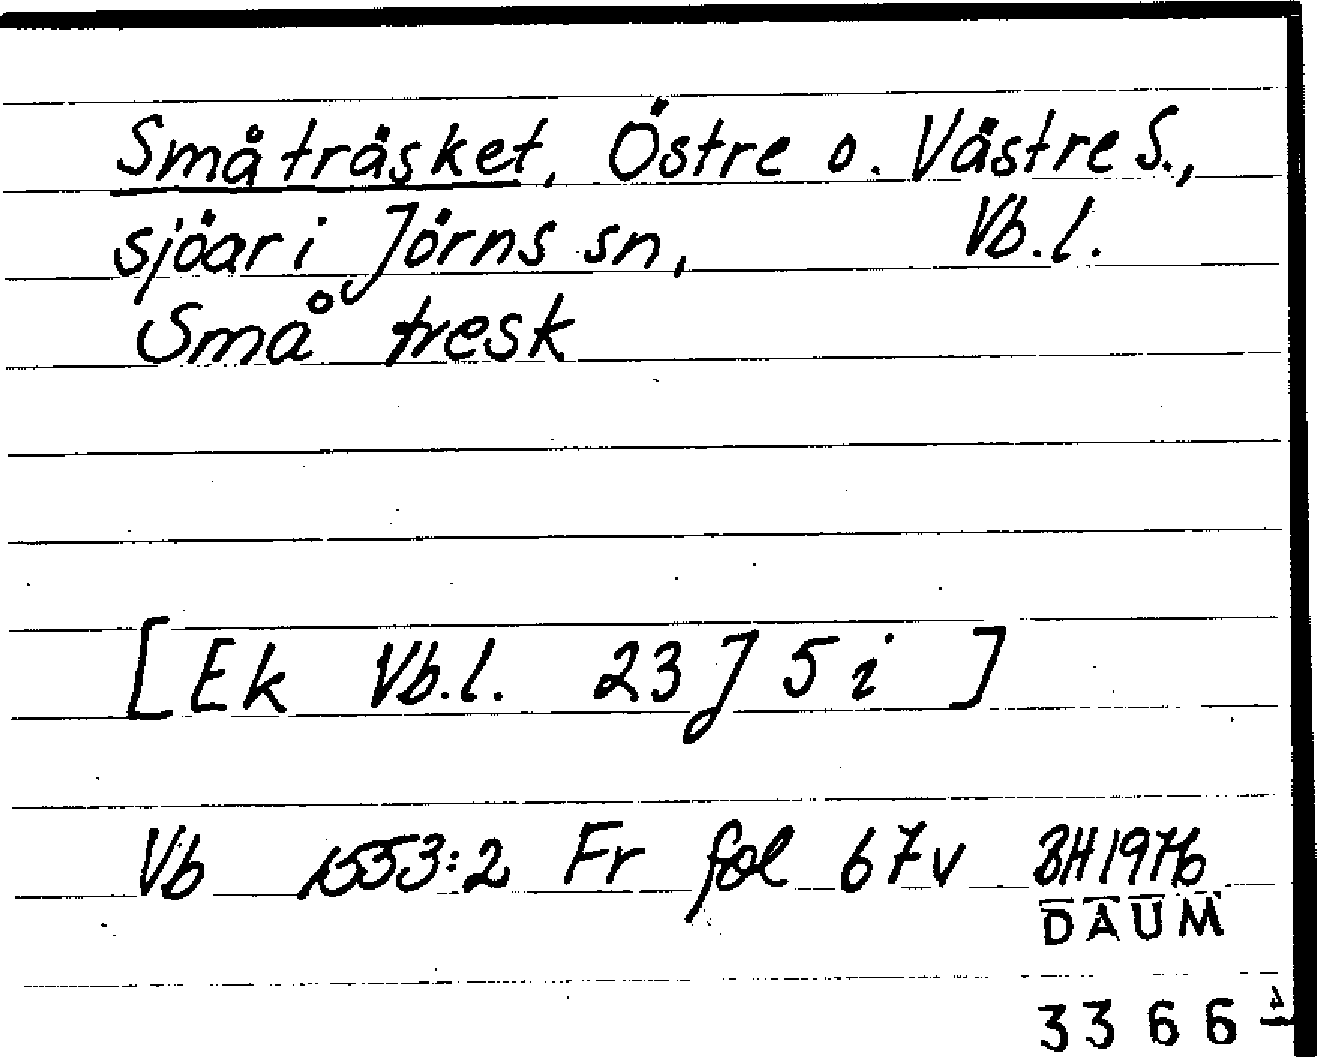 Småträsket, Östre o. Västre S.,
sjöar i Jörns sn, Vb.l.
Små tresk
[Ek Vb.l. 23 J 5 i ]
Vb 1553:2 Fr fol 67v BH 1976
DAUM
3366